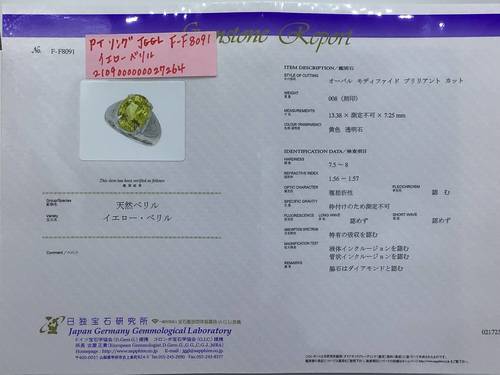 Gemstone Report
No. F-F8091
PT リング JGGL F-F8091
イエローベリル
2109000000027264
This stone has been verified as follows
Group/Species
天然ベリル
Variety
イエロー・ベリル
Comment / コメント
日独宝石研究所
Japan Germany Gemmological Laboratory
ITEM DESCRIPTION / 鑑別石
STYLE OF CUTTING
オーバル モディファイド ブリリアント カット
WEIGHT
008 (刻印)
MEASUREMENTS
13.38 × 測定不可 × 7.25 mm
COLOUR, TRANSPARENCY
黄色 透明石
IDENTIFICATION DATA / 検査項目
HARDNESS
7.5 ~ 8
REFRACTIVE INDEX
1.56 - 1.57
OPTIC CHARACTER
複屈折性
PLEOCHROISM
認む
SPECIFIC GRAVITY
枠付けのため測定不可
FLUORESCENCE LONG WAVE
認めず
SHORT WAVE
認めず
ABSORPTION SPECTRUM
特有の吸収を認む
MAGNIFICATION TEST
液体インクルージョンを認む
管状インクルージョンを認む
REMARKS
脇石はダイアモンドと認む